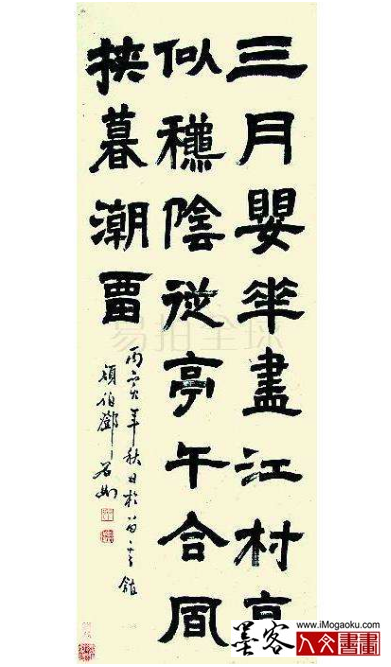 三月嬰華盡江村夏
似龝陰從亭午合風
挾暮潮畱
丙寅年秋日於
頑伯鄧石如
易拍全球
墨客
www.iMogaoku.com
人文書畫